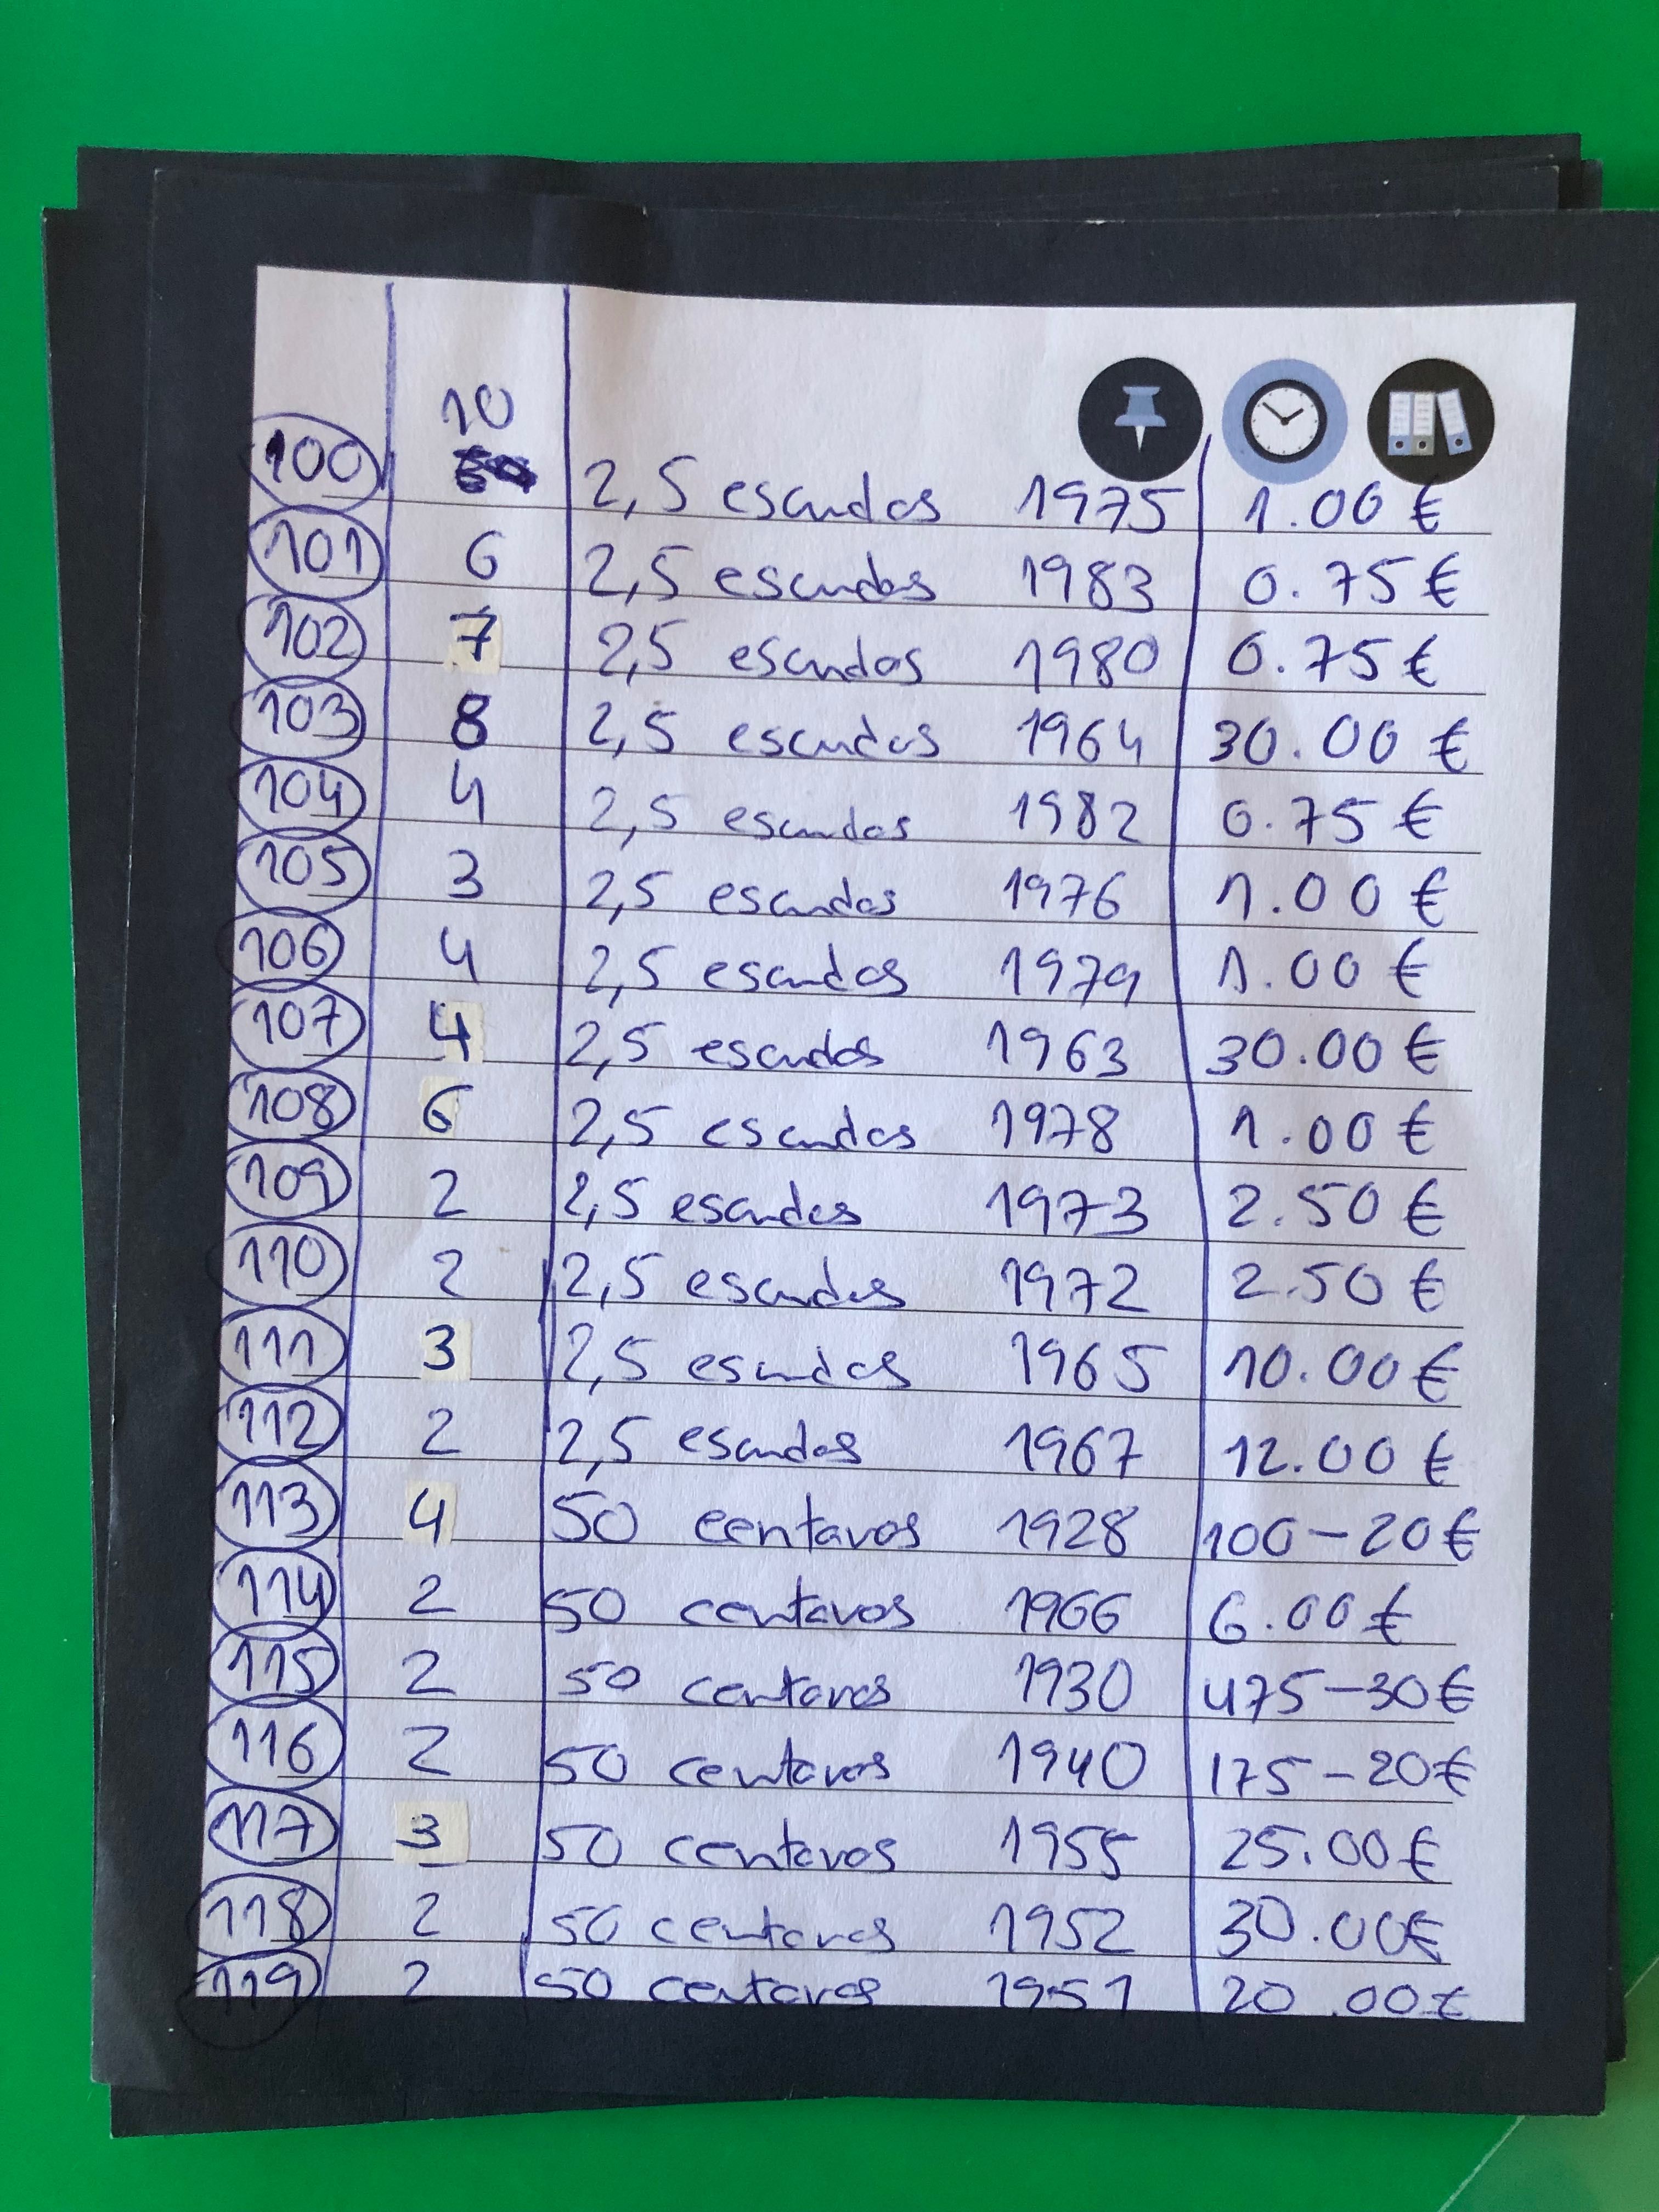 10
100 2,5 escudos 1975 1.00 €
101 6 2,5 escudos 1983 0.75 €
102 7 2,5 escudos 1980 0.75 €
103 8 2,5 escudos 1964 30.00 €
104 4 2,5 escudos 1982 0.75 €
105 3 2,5 escudos 1976 1.00 €
106 4 2,5 escudos 1979 1.00 €
107 4 2,5 escudos 1963 30.00 €
108 6 2,5 escudos 1978 1.00 €
109 2 2,5 escudos 1973 2.50 €
110 2 2,5 escudos 1972 2.50 €
111 3 2,5 escudos 1965 10.00 €
112 2 2,5 escudos 1967 12.00 €
113 4 50 centavos 1928 100-20 €
114 2 50 centavos 1966 6.00 €
115 2 50 centavos 1930 475-30 €
116 2 50 centavos 1940 175-20 €
117 3 50 centavos 1955 25.00 €
118 2 50 centavos 1952 30.00 €
119 2 50 centavos 1951 20.00 €